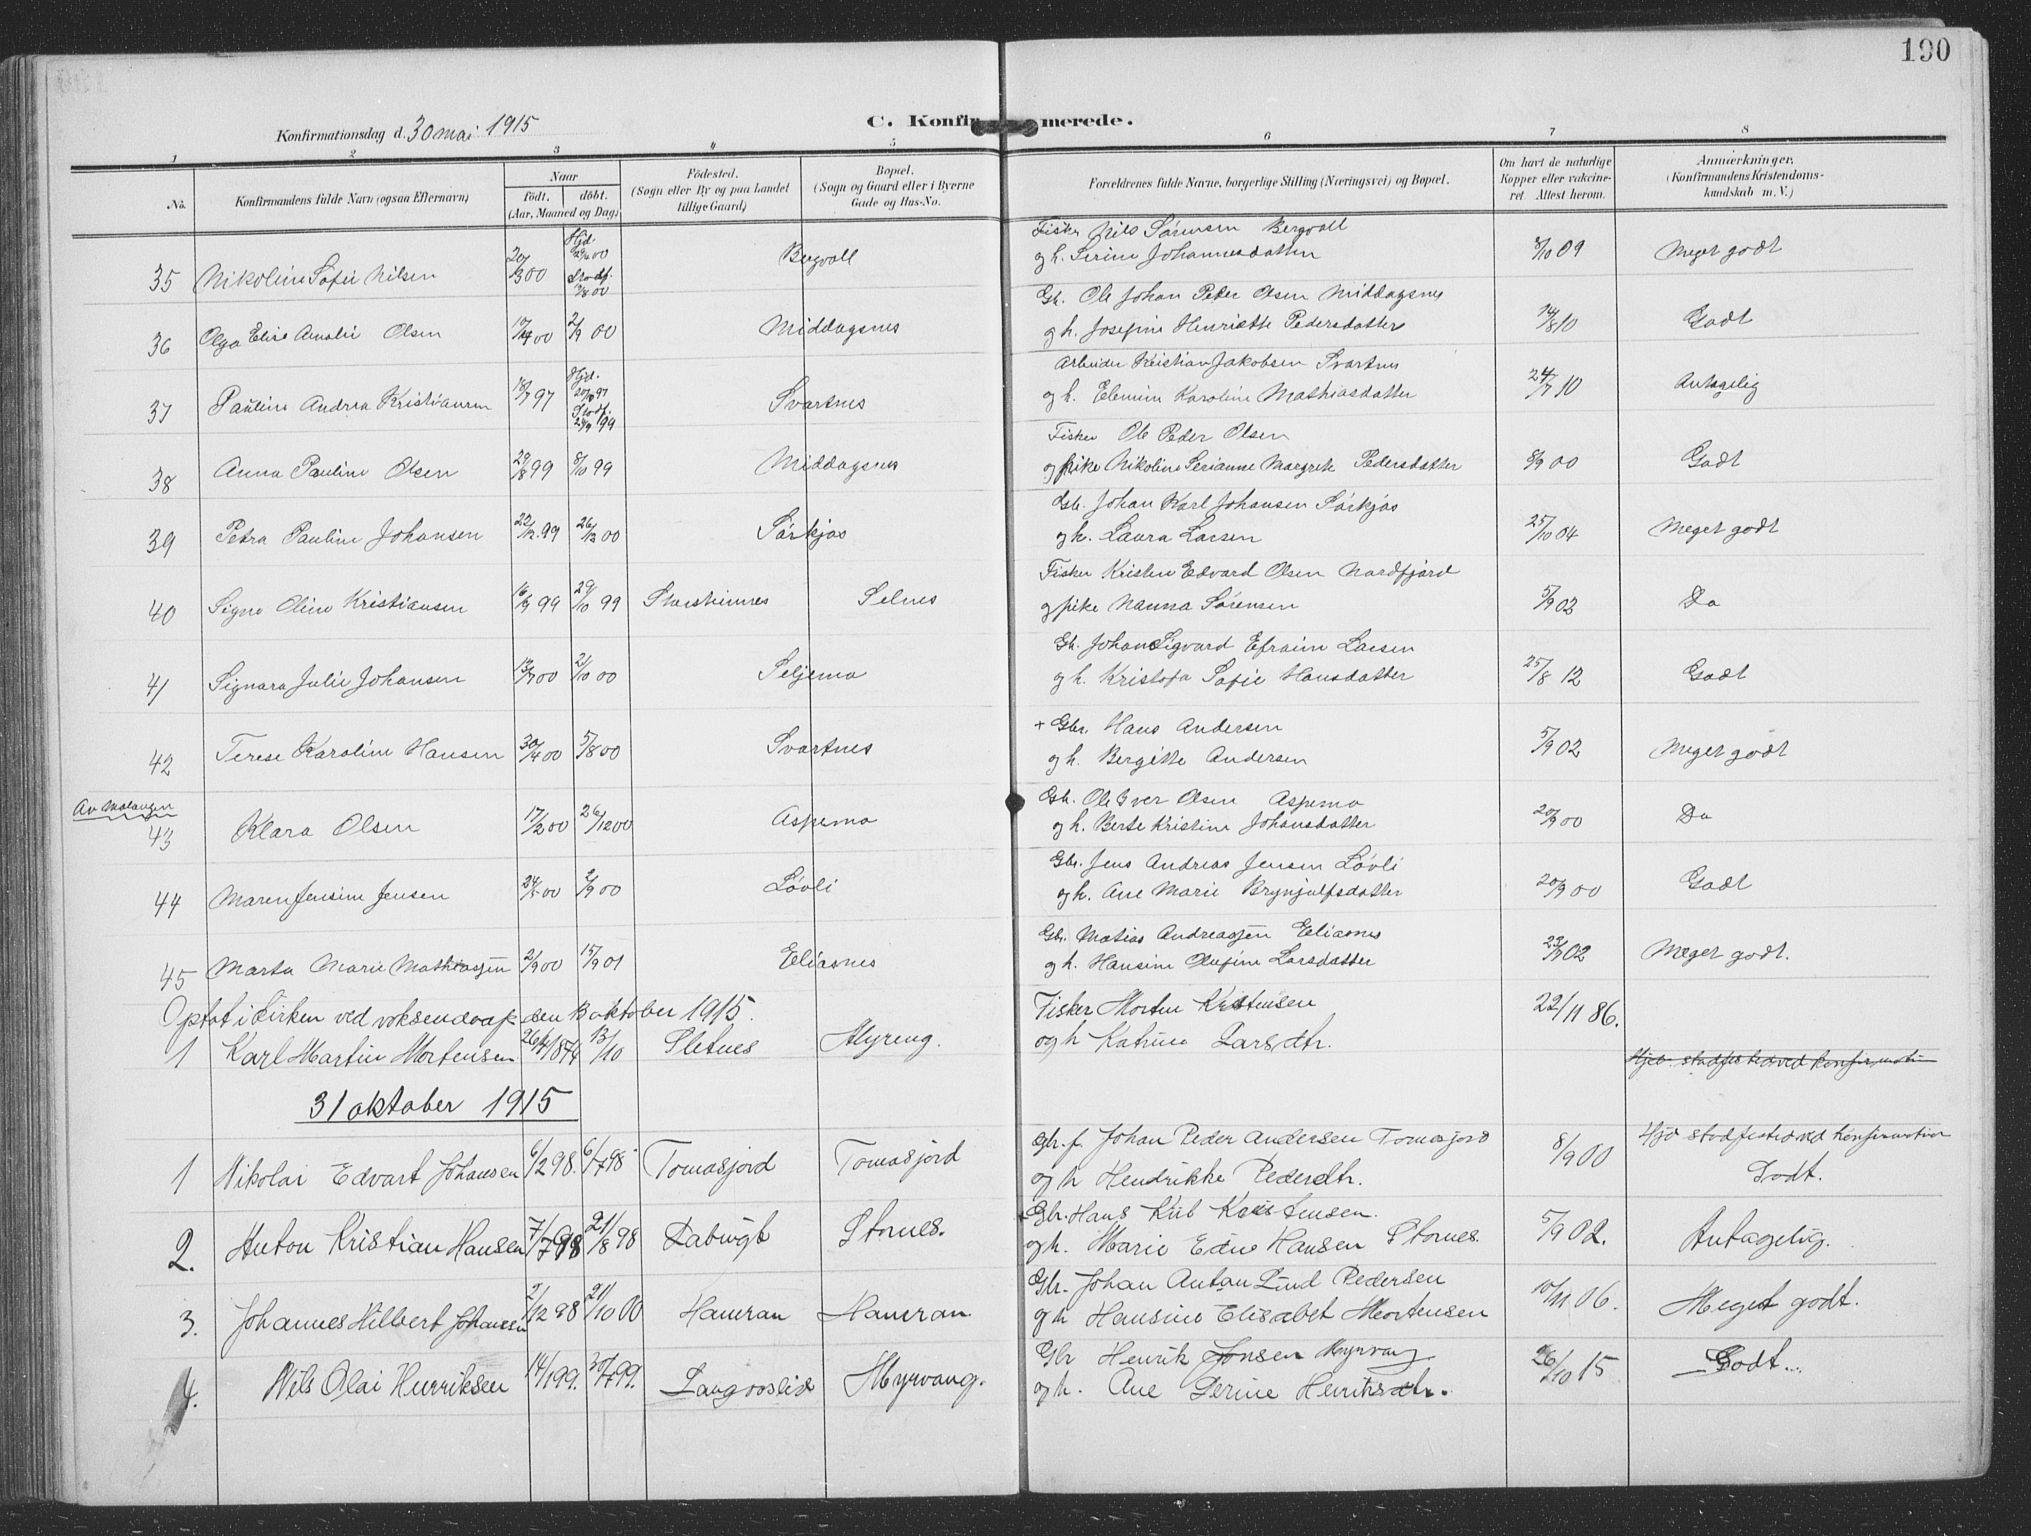 190
Konfirmationsdag d. 30 mai 1915
C. Konfirmerede.
1 2 3 4 5 6 7 8
No. Konfirmandens fulde Navn (ogsaa Efternavn)
Naar
födt. döbt.
(Aar, Maaned og Dag)
Födested.
(Sogn eller By og paa Landet
tillige Gaard)
Bopæl.
(Sogn og Gaard eller i Byerne
Gade og Hus-No.
Forældrenes fulde Navne, borgerlige Stilling (Næringsvei) og Bopæl.
Om havt de naturlige
Kopper eller vakcine-
ret. Attest herom.
Anmærkninger.
(Konfirmandens Kristendoms-
kundskab m. V.)
35 Nikoline Sofie Nilsen 20/3 00 Hjd. 00 Stadf. 00 Bergvoll
Fisker Nils Sørensen Bergvoll
og h. Serine Johannesdatter 8/10 09 Meget godt
36 Olga Elise Amalie Olsen 00 2/9 00 Middagsnes
Gb. Ole Johan Peder Olsen Middagsnes
og h. Josefine Henriette Pedersdatter 14/8 10 Godt
37 Pauline Andrea Kristiansen 18/7 97 Hjd. 97 Stadf. 99 Svartnes
Arbeider Kristian Jakobsen Svartnes
og h. Elenine Karoline Mathiasdatter 24/7 10 Antagelig
38 Anna Pauline Olsen 29/8 99 8/10 99 Middagsnes
Fisker Ole Peder Olsen
og pike Nikoline Serianne Margrete Pedersdatter 8/9 00 Godt
39 Petra Pauline Johansen 22/12 99 26/12 00 Sørkjos
Gb. Johan Karl Johansen Sørkjos
og h. Laura Larsen 25/10 04 Meget godt
40 Signe Oline Kristiansen 16/9 99 29/10 99 Storsteinnes Selnes
Fisker Kristen Edvard Olsen Nordfjord
og pike Nanna Sørensen 5/9 02 Do
41 Signora Julie Johansen 13/7 00 21/10 00 Seljemo
Gb. Johan Sigvard Efraim Larsen
og h. Kristofa Sofie Hansdatter 25/8 12 Godt
42 Terese Karoline Hansen 30/4 00 5/8 00 Svartnes
+ Gbr. Hans Andersen
og h. Bergitte Andersen 5/9 02 Meget godt
Av Malangen
43 Klara Olsen 17/2 00 26/12 00 Aspemo
Gb. Ole Iver Olsen Aspemo
og h. Berte Kristine Johansdatter 20/9 00 Do
44 Maren Jensine Jensen 24/5 00 2/9 00 Løvli
Gbr. Jens Andreas Jensen Løvli
og h. Ane Marie Brynjulfsdatter 20/9 00 Godt
45 Marta Marie Mathiassen 2/9 00 15/9 01 Eliasnes
Gb. Matias Andreassen Eliasnes
og h. Hansine Olufine Larsdatter 23/9 02 Meget godt.
Optat i kirken ved voksendaap den 13 oktober 1915.
1 Karl Martin Mortensen 26/4 1874 13/10 Sletnes Myreng.
Fisker Morten Kristensen
og h Katrine Larsdtr. 22/11 86.
Hjed. stadfestet ved konfirmation
31 oktober 1915
1 Nikolai Edvart Johansen 6/2 98. 6/7 98 Tomasjord Tomasjord
Gbr. f. Johan Peder Andersen Tomasjord
og h Hendrikke Pedersdtr. 8/9 00
Hjd stadfestet ved konfirmation
Godt.
2. Anton Kristian Hansen 7/7 98 21/8 98 Stornes.
+ Gbr. Hans Kristensen.
og h. Marie Edne Hansen Stornes. 5/9 02. Antagelig.
3. Johannes Hilbert Johansen 2/12 98 21/10 00 Hamran Hamran
Gbr. Johan Antan Lind Pedersen
og h Hansine Elisabet Mortensen 10/11 06. Meget godt.
4. Nils Olai Henriksen 14/1 99. 30/7 99. Myrvang.
Gbr Henrik Jonsen Myrvang
og h. Ane Serine Henriksdtr. 26/10 15 Godt.